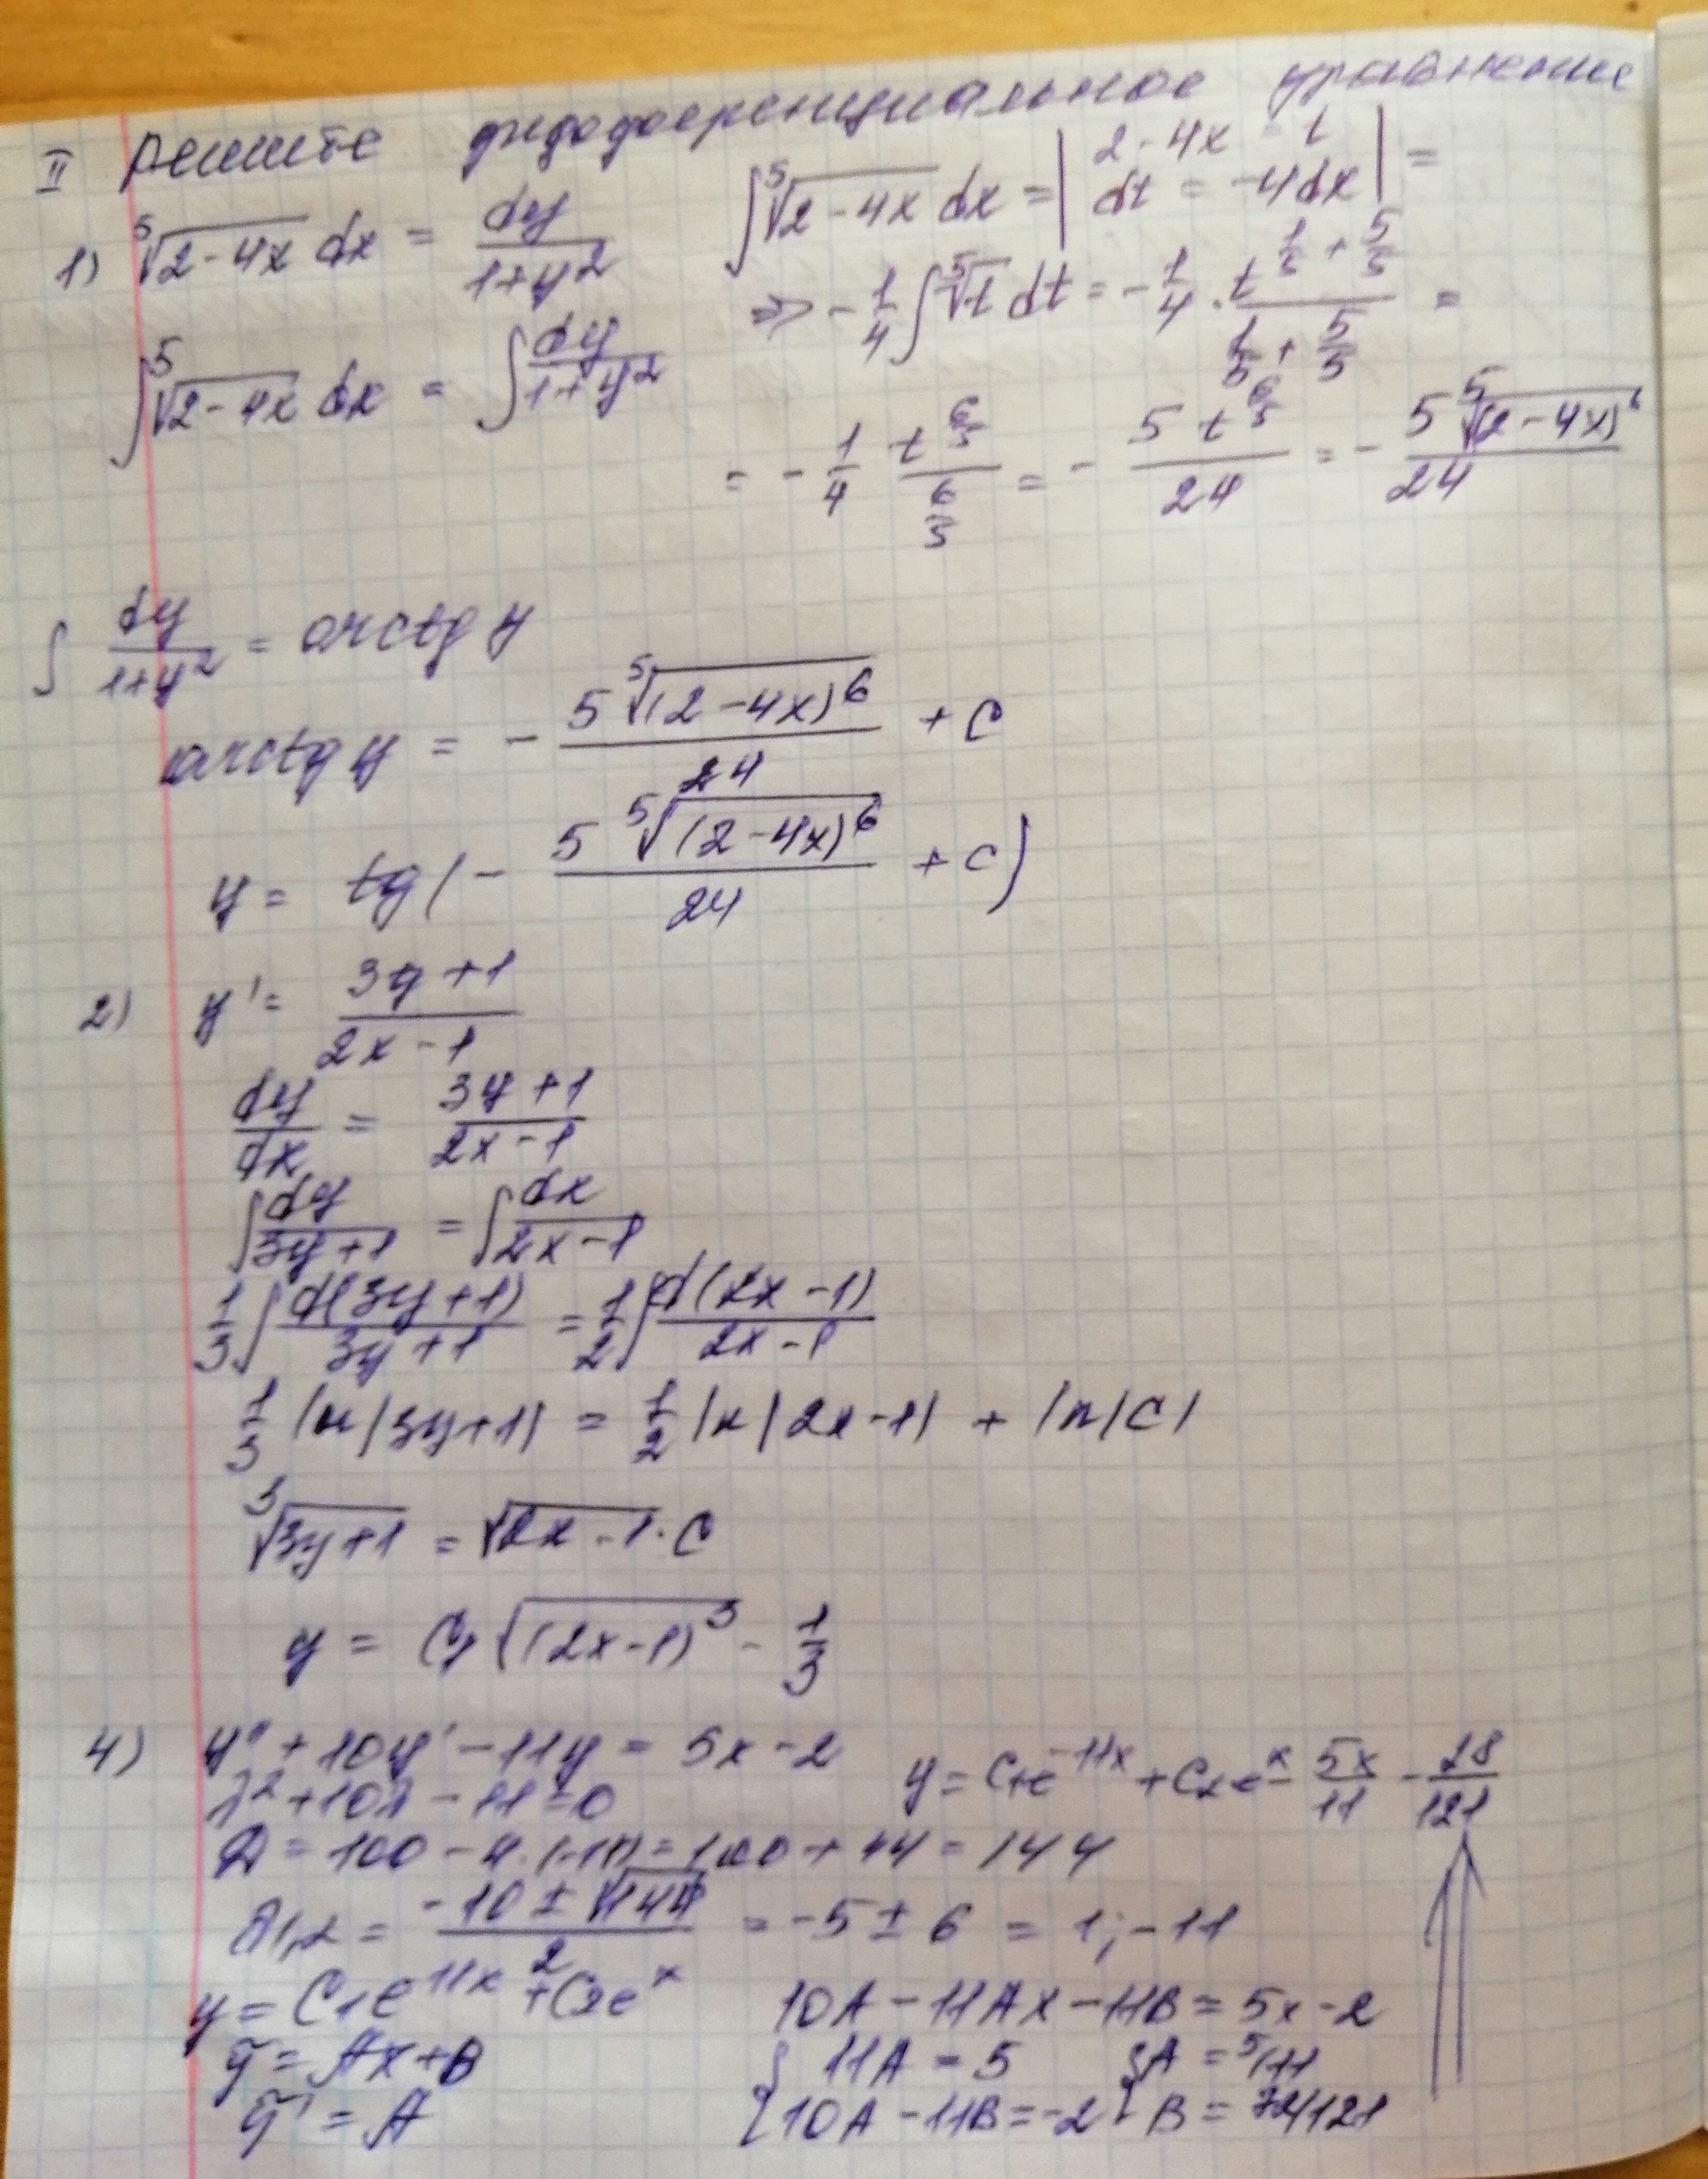 II Решите дифференциальное уравнение
1) ⁵√(2-4x) dx = dy/(1+y²)
∫ ⁵√(2-4x) dx = ∫ dy/(1+y²)
∫ ⁵√(2-4x) dx = | 2-4x = t
dt = -4dx | =
=> -1/4 ∫ ⁵√t dt = -1/4 · t^(1/5 + 5/5)/(1/5 + 5/5) =
= -1/4 t^(6/5)/(6/5) = - 5t^(6/5)/24 = - 5 ⁵√(2-4x)⁶/24
∫ dy/(1+y²) = arctg y
arctg y = - 5 ⁵√(2-4x)⁶/24 + C
y = tg(- 5 ⁵√(2-4x)⁶/24 + C)
2) y' = (3y+1)/(2x-1)
dy/dx = (3y+1)/(2x-1)
∫ dy/(3y+1) = ∫ dx/(2x-1)
1/3 ∫ d(3y+1)/(3y+1) = 1/2 ∫ d(2x-1)/(2x-1)
1/3 ln|3y+1| = 1/2 ln|2x-1| + ln|C|
³√(3y+1) = √(2x-1) · C
y = C₁ √(2x-1)³ - 1/3
4) y'' + 10y' - 11y = 5x - 2
λ² + 10λ - 11 = 0
y = C₁e^(-11x) + C₂e^x - 5x/11 - 28/121
D = 100 - 4·(-11) = 100 + 44 = 144
λ1,2 = (-10 ± √144)/2 = -5 ± 6 = 1; -11
y = C₁e^(11x) + C₂e^x
ỹ = Ax + B
ỹ' = A
10A - 11Ax - 11B = 5x - 2
{ 11A = 5 { A = 5/11
{ 10A - 11B = -2 { B = 72/121